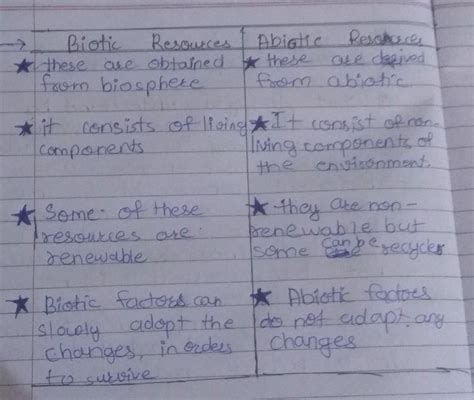 → Biotic Resources | Abiotic Resources
★ these are obtained
from biosphere
★ these are derived
from abiotic
★ it consists of living
components
★ It consist of non-
living components of
the environment.
★ Some of these
resources are
renewable
★ they are non-
renewable but
some can be recycles
★ Biotic factors can
slowly adopt the
changes, in orders
to survive
★ Abiotic factors
do not adapt any
changes